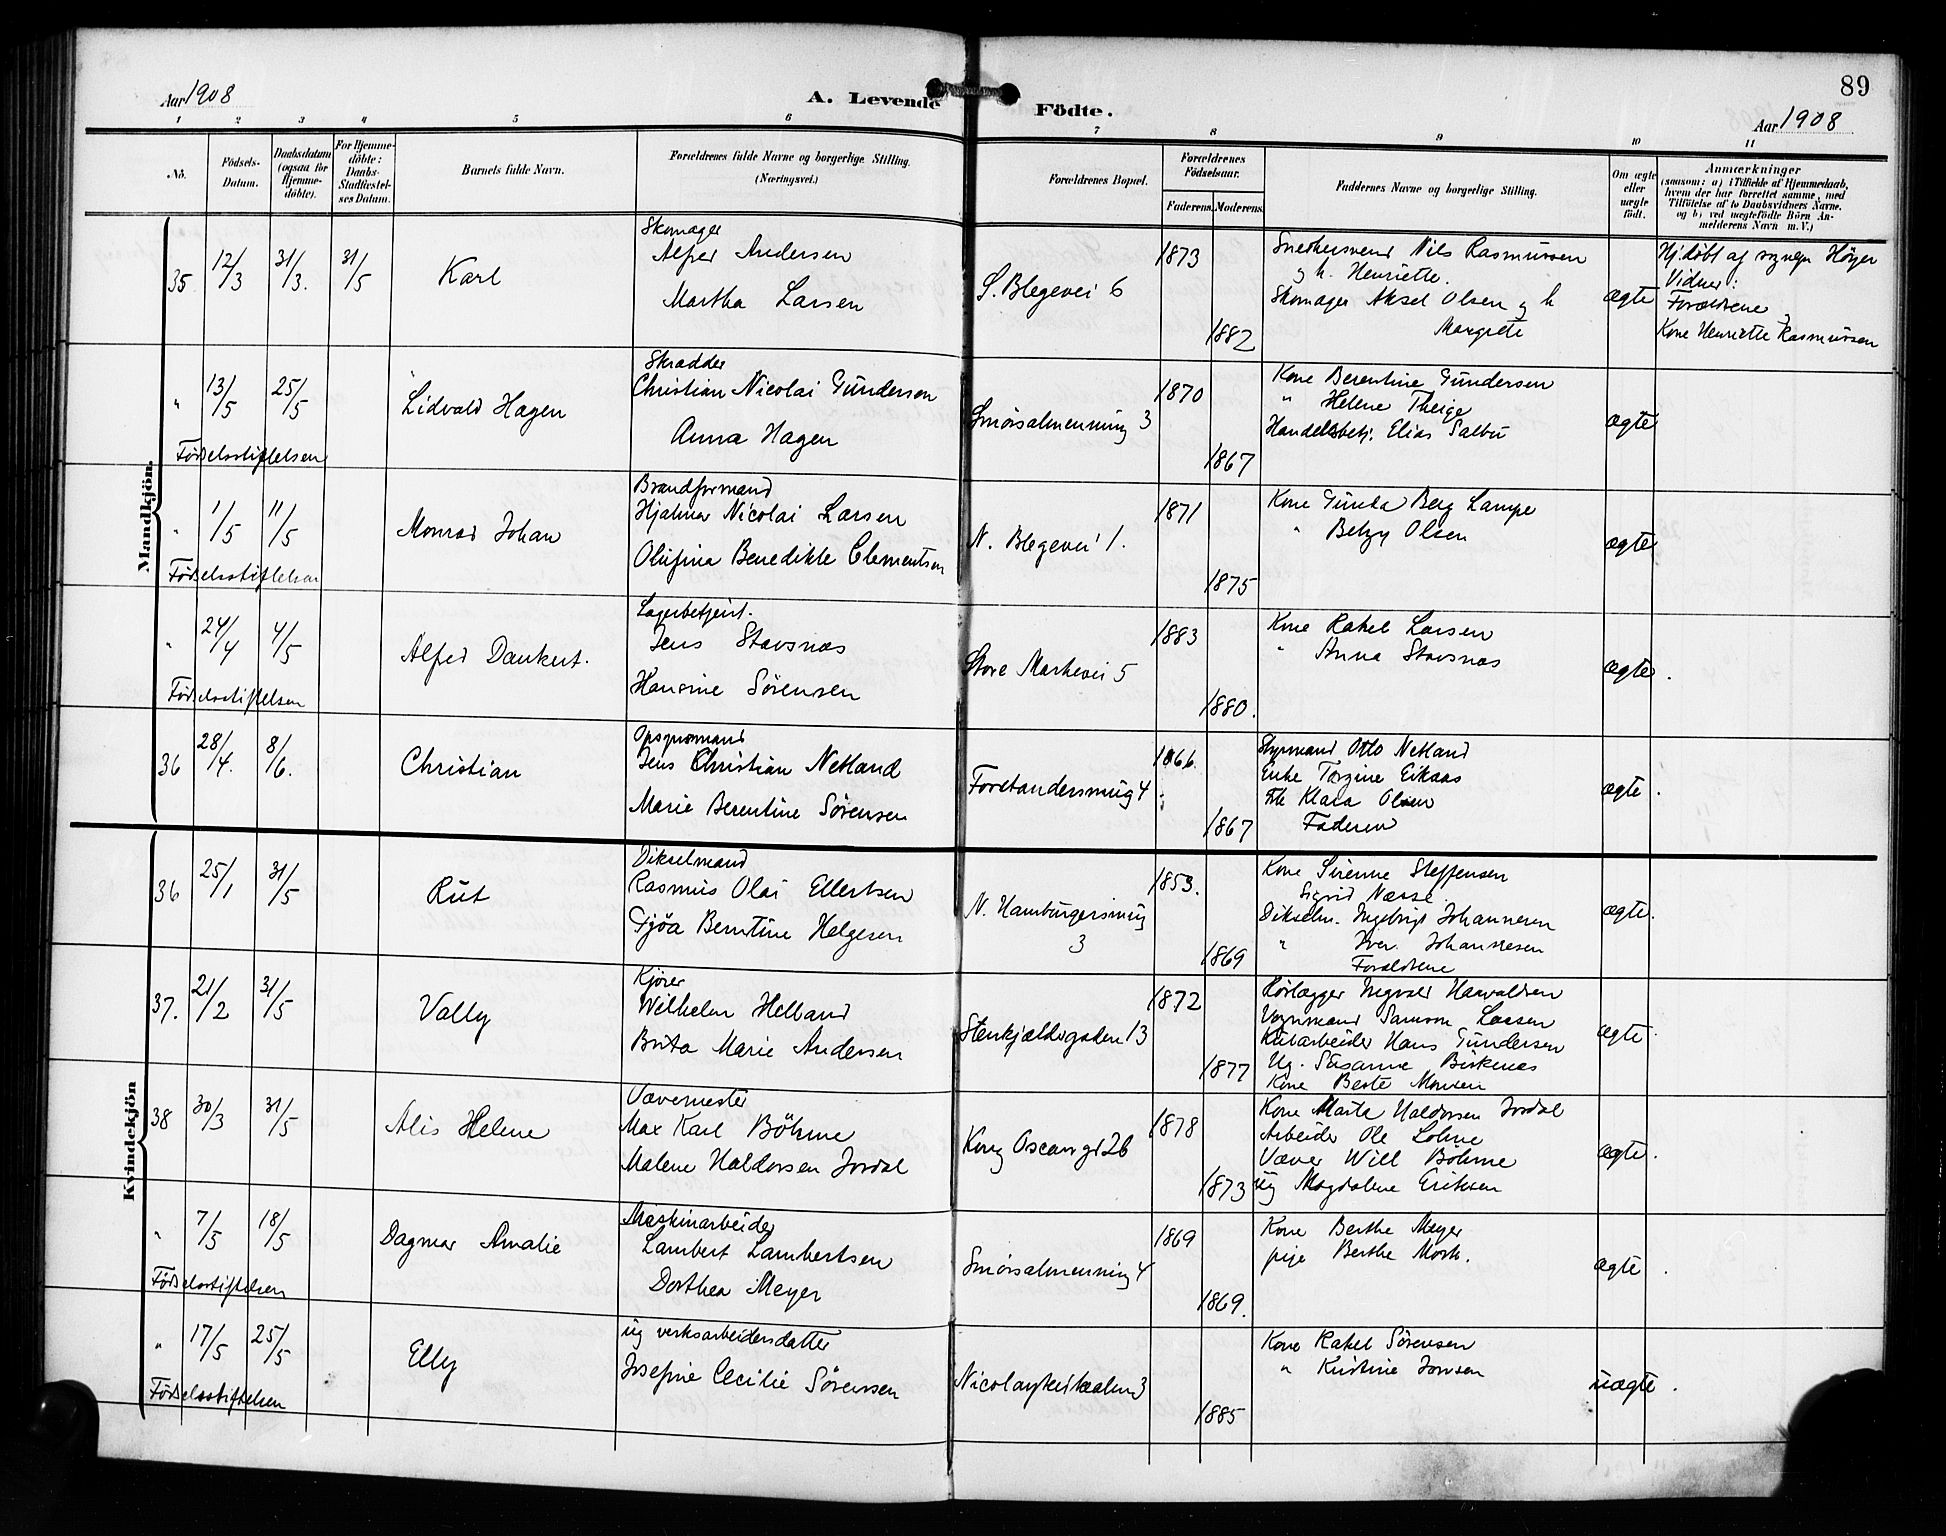 89
Aar 1908
A. Levende Födte.
Aar 1908
1 2 3 4 5 6 7 8 9 10 11
No.
Födsels-Datum.
Daabsdatum (ogsaa for Hjemme-döbte).
For Hjemme-döbte: Daabs-Stadfæstel-ses Datum.
Barnets fulde Navn.
Forældrenes fulde Navne og borgerlige Stilling.
(Næringsvei.)
Forældrenes Bopæl.
Forældrenes Födselsaar.
Faderens. Moderens.
Faddernes Navne og borgerlige Stilling.
Om ægte eller uægte födt.
Anmærkninger
(saasom: a) i Tilfælde af Hjemmedaab, hvem der har forrettet samme, med Tilföielse af to Daabsvidners Navne. og b) ved uægtefödte Börn An-melderens Navn m. V.)
Mandkjön.
35 12/3 31/3. 31/5 Karl
Skomager
Alfred Andersen
Martha Larsen
S. Blegevei 6
1873
1882
Snedkersvend Nils Rasmussen
g h. Henriette.
Skomager Aksel Olsen g h
Margrete
ægte
Hj. döbt af sognepr Höyer
Vidner:
Forældrene
Kone Henriette Rasmussen
" 13/5 25/5 Lidvald Hagen
Födselsstiftelsen
Skrædder
Christian Nicolai Gundersen
Anna Hagen
Smörsalmenning 3
1870
1867
Kone Berentine Gundersen
" Helene Theige
Handelsbetj. Elias Salbu
ægte
" 1/5 11/5 Monrad Johan
Födselsstiftelsen
Brandformand
Hjalmar Nicolai Larsen
Olufina Benedikte Clementsen
N. Blegevei 1.
1871
1875
Kone Gunda Berg Lampe
" Betzy Olsen
ægte
" 24/4 4/5 Alfred Dankert.
Födselsstiftelsen
Lagerbetjent.
Jens Stavsnæs
Hansine Sörensen
Store Markevei 5
1883
1880.
Kone Rakel Larsen
" Anna Stavsnæs
ægte.
36 28/4. 8/6. Christian
Opsynsmand
Jens Christian Netland
Marie Berentine Sörensen
Forstandersmug 4
1866
1867
Styrmand Otto Netland
Enke Torgine Eikaas
Frk Klara Olsen
Faderen
ægte.
Kvindekjön
36 25/1 31/5 Rut
Dikselmand
Rasmus Olai Ellertsen
Gjöa Berntine Helgesen
N. Hamburgersmug
3
1853.
1869
Kone Sirenne Steffensen
Sigrid Næsse
Dikselm. Ingebrigt Johannesen
" Iver. Johannesen
Forældrene
ægte.
37. 21/2 31/5 Vally
Kjörer
Wilhelm Helland
Brita Marie Andersen
Stenkjeldergaden 13
1872
1877
Rörlægger Ingvald Havaldsen
Vognmand Samson Larsen
Kularbeider Hans Gundersen
Ug. Susanne Birkenes
Kone Berte Monsen
ægte.
38 30/3 31/5 Alis Helene
Vævemester
Max Karl Böhme
Malene Haldorsen Jordal
Kong Oscarsgd 26
1878
1873
Kone Marta Haldorsen Jordal
Arbeider Ole Lohne
Væver Will Böhme
ug Magdalene Eriksen
ægte.
" 7/5 18/5 Dagmar Amalie
Födselsstiftelsen
Maskinarbeider
Lambert Lambertsen
Dorthea Meyer
Smörsalmenning 4
1869
1869.
Kone Berthe Meyer
pige Berthe Mork.
ægte.
" 17/5 25/5 Elly
Födselsstiftelsen
ug verksarbeidersdatter
Josefine Cecilie Sörensen
Nicolaykirkealm 3
1885
Kone Rakel Sörensen
" Kristine Jonsen
uægte.